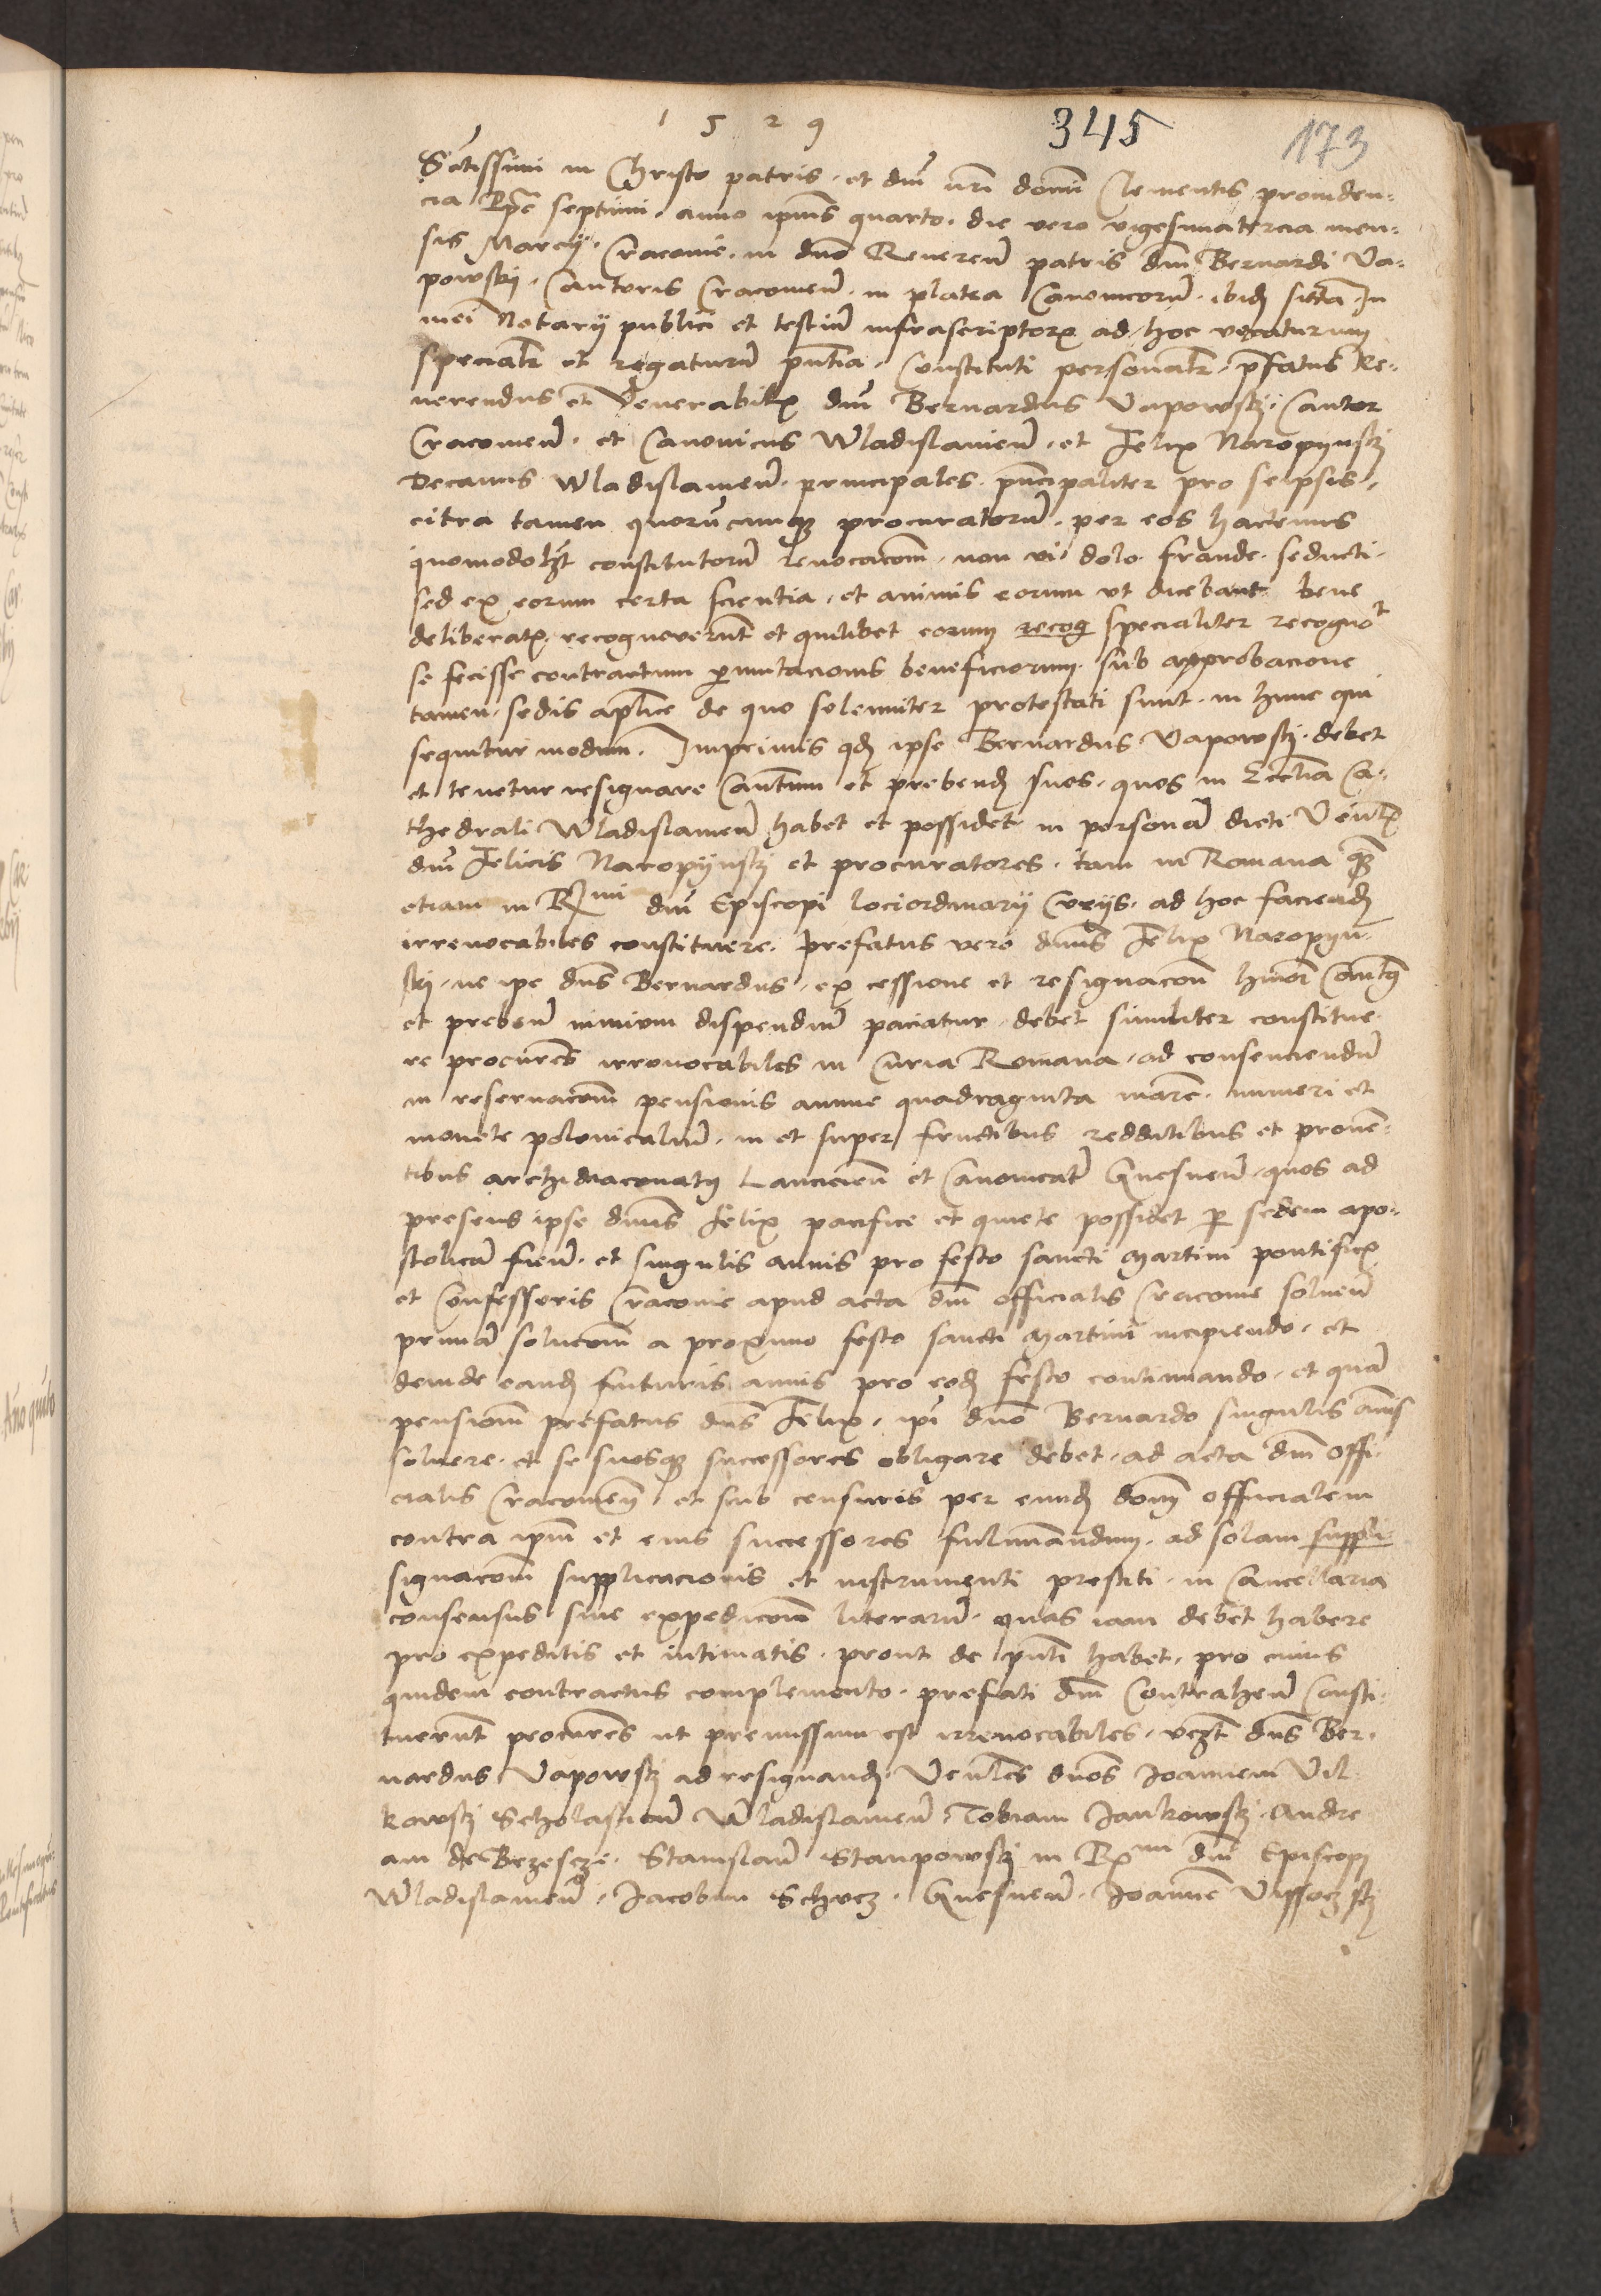 1529 345 173
Sctissimi in Christo patris et dni nri domi Clementis providen=
cia Ppe septimi. anno ipius quarto. die vero vigesimatercia men=
sis Marcij. Cracovie. in dno Reveren patris dni Bernardi Va=
powskij. Cantoris Cracovien. in platea Canonicorum. ibid sicta In
mei Notarij publici et testium infrascriptorum ad hoc vocatorum
specialr et rogatorum pntia. Constituti personalr. prfatus Re=
verendus et Venerabilis dni Bernardus Vapowskj. Cantor
Cracovien. et Canonicus Wladislavien. et Felix Naropijnskj
Decanus Wladislavien. principales. principaliter pro seipsis,
citra tamen quorumcumque procuratorum. per eos hactenus
quomodolibet constitutorum revocacom. non vi dolo fraude. seducti.
sed ex eorum certa scientia. et animis eorum vt dicebant bene
deliberatis. recognoverunt et quilibet eorum recog specialiter recognot
se fecisse contractum permutacionis beneficiorum. sub approbacione
tamen sedis aplice de quo solemniter protestati sunt. in hunc qui
sequitur modum. Imprimis qd ipse Bernardus Vapowskj. debet
et tenetur resignare Cantum et prebend suos. quos in Ecclia Ca=
thedrali Wladislavien habet et possidet in personam dicti Venlis
dni Felicis Naropijnskj et procuratores. tam in Romana quam
etiam in Rmi dni Episcopi lociordinarij Curijs. ad hoc faciend
irrevocabiles constituere. prefatus vero dnus Felix Naropijn=
skj. ne ipe dns Bernardus. ex cessione et resignacom hmoi Cantus
et preben nimium dispendium paciatur. debet similiter constitue
re procures irrevocabiles in Curia Romana. ad consenciendum
in reservacom pensionis annue quadraginta marc. numeri et
monete polonicalium. in et super fructibus redditibus et proven=
tibus archidiaconatus Lancicien et Canonicatus Gnesnen. quos ad
presens ipse dnus Felix pacifice et quiete possidet per sedem apo=
stolicam fien. et singulis annis pro festo sancti Martini pontificis
et Confessoris Cracovie apud acta dni officialis Cracovie solven
primam solucom a proximo festo sancti Martini incipiendo. et
deinde eand futuris annis pro eod festo continuando. et quam
pensionem prefatus dns Felix. ipi dno Bernardo singulis annis
solvere. et se suosque successores obligare debet. ad acta dni offi=
cialis Cracovien. et sub censuris per eund domi officialem
contra ipm et eius successores fulminandum. ad solam suppli
signacom supplicacionis et instrumenti prestiti. in Cancellaria
consensus sine expedicom literarum. quas iam debet habere
pro expeditis et intimatis. prout de pnti habet. pro cuius
quidem contractus complemento. prefati dni Contrahen Consti=
tuerunt procures ut premissum est irrevocabiles. vezt dns Ber=
nardus Vapowskj ad resignand. Venles dnos Joannem Vil=
kowskj Scholasticum Wladislavien. Tobiam Jankowskj. Andre
am de Brzescze. Stanislaum Stanpowskj in Rmi dni Episcopi
Wladislavien. Jacobum Schvcz. Gnesnen. Joannem Vissoczskj